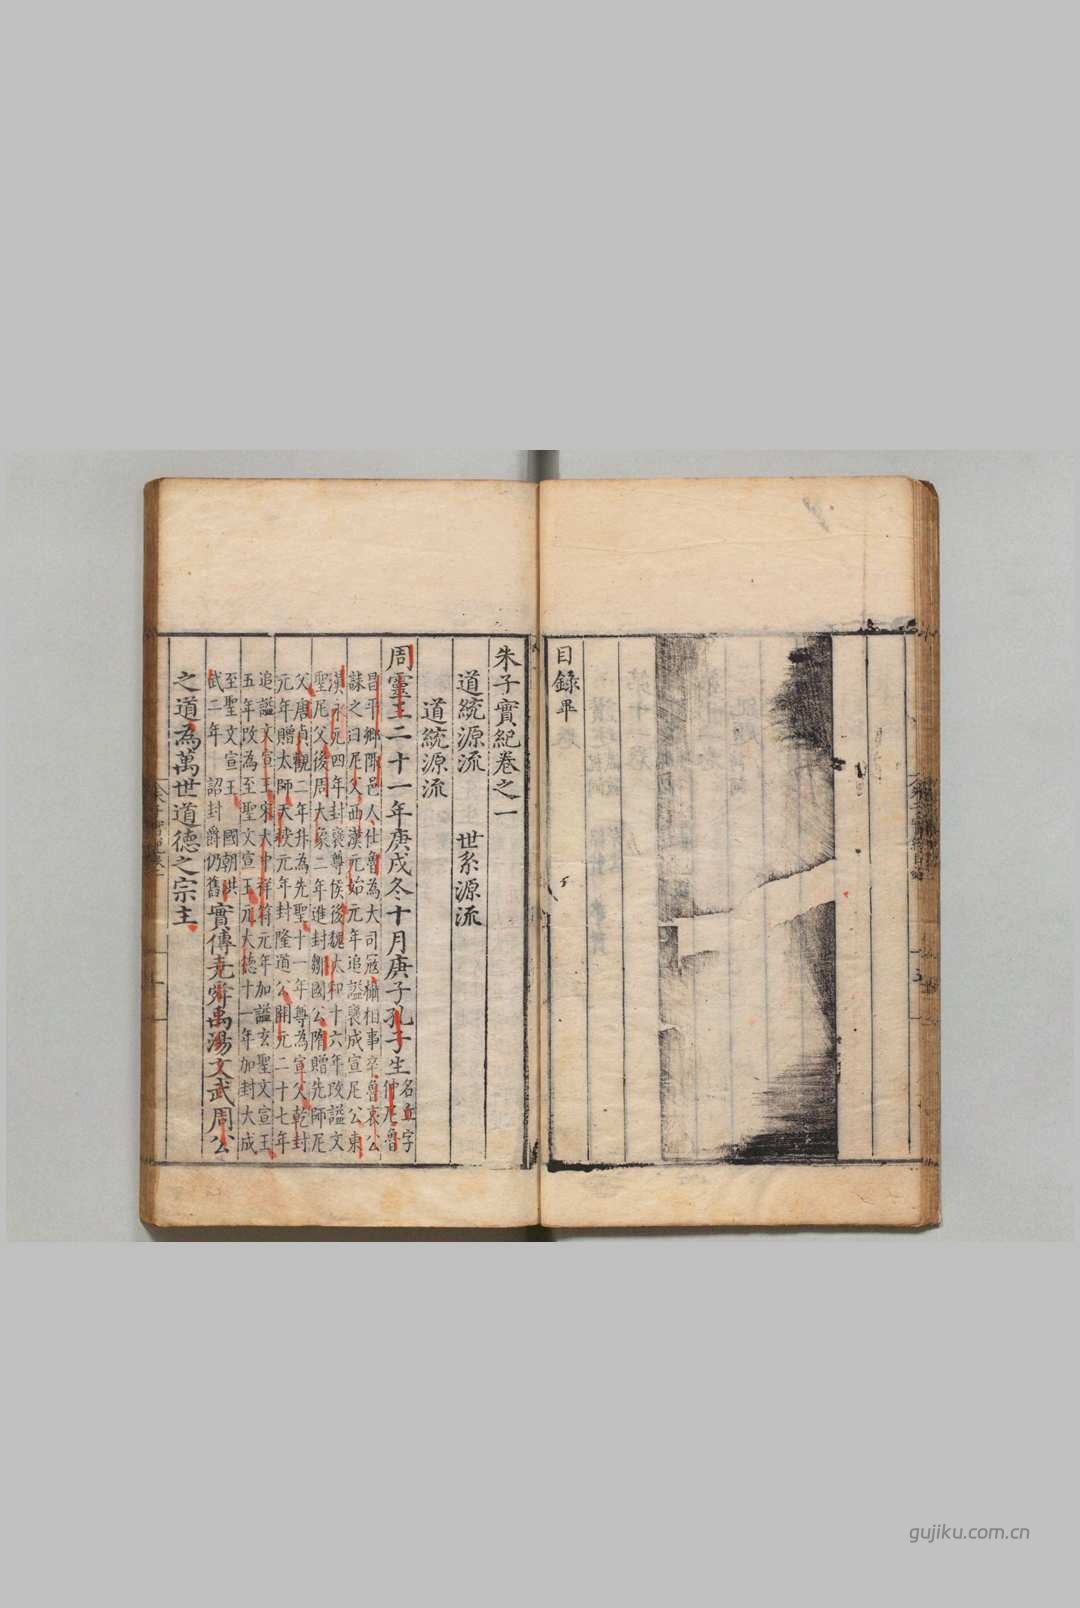 目錄畢
朱子實紀卷之一
道統源流　世系源流
道統源流
周靈王二十一年庚戌冬十月庚子孔子生名丘字仲尼魯
昌平鄉陬邑人仕魯為大司寇攝相事卒魯哀公
誄之曰尼父西漢元始元年追謚襃成宣尼公東
漢永元四年封襃尊侯後魏太和十六年改謚文
聖尼父後周大象二年進封鄒國公隋贈先師尼
父唐貞觀二年升為先聖十一年尊為宣父乾封
元年贈太師天授元年封隆道公開元二十七年
追謚文宣王宋大中祥符元年加謚玄聖文宣王
五年改為至聖文宣王元大德十一年加封大成
至聖文宣王　國朝洪
武二年　詔封爵仍舊實傳堯舜禹湯文武周公
之道為萬世道德之宗主
gujiku.com.cn